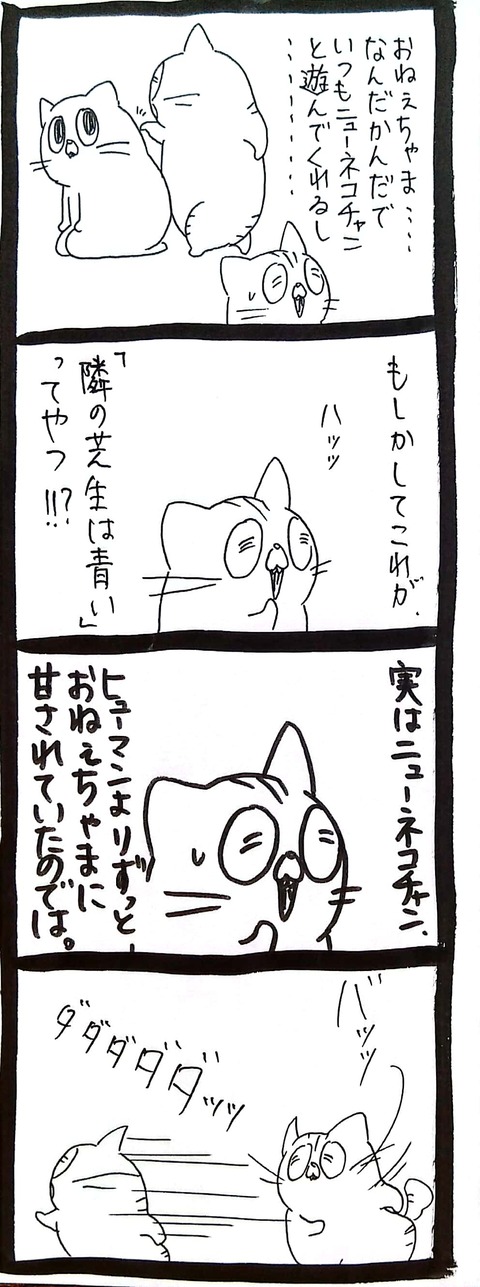 おねぇちゃま……
なんだかんだで
いつもニューネコチャン
と遊んでくれるし
…………
もしかしてこれが、
ハッッ
「隣の芝生は青い」
ってやつ!!?
実はニューネコチャン、
ヒューマンよりずっと、
おねぇちゃまに
甘されていたのでは。
バッッ
ダダダダダッッ